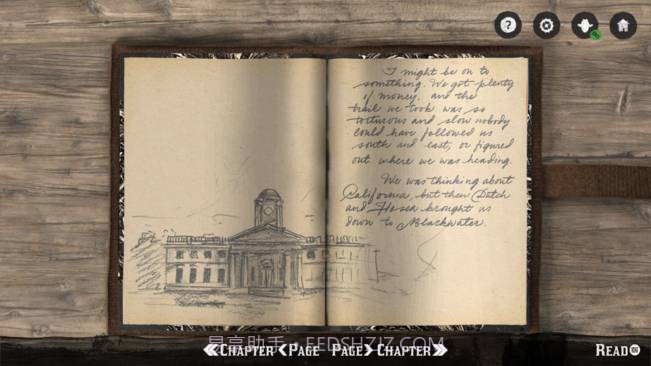 I might be on to
something. We got plenty
of money, and the
trail we took was so
torturous and slow nobody
could have followed us
south and east, or figured
out where we was heading.
We was thinking about
California, but then Dutch
and Hosea brought us
down to Blackwater.
易享助手 · EEDSHZJZ.COM
CHAPTER PAGE PAGE CHAPTER READ